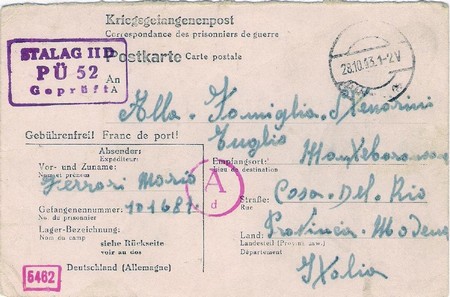 Kriegsgefangenenpost
Correspondance des prisonniers de guerre
Postkarte Carte postale
STALAG II D
PÜ 52
Geprüft
An
A
28.10.43.1-2V
Alla Famiglia
Gebührenfrei! Franc de port!
Absender:
Expéditeur:
Empfangsort:
Lieu de destination
Vor- und Zuname:
Nom et prénom
Ferrari Mario
A
d
Straße:
Rue
Casa Del Rio
Gefangenennummer: 101687
No. du prisonnier
Lager-Bezeichnung:
Nom du camp
siehe Rückseite
voir au dos
Land: Provincia Modena
Landesteil (Provinz usw.)
Département
5462
Deutschland (Allemagne)
Italia